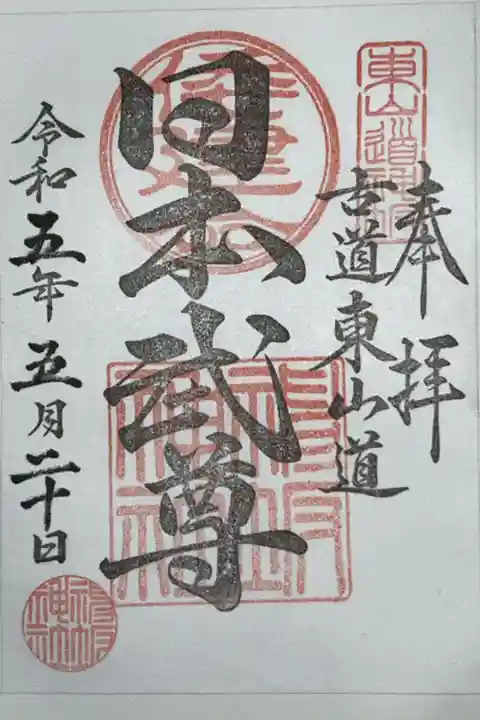 奉拝
古道東山道
日本武尊
令和五年五月二十日